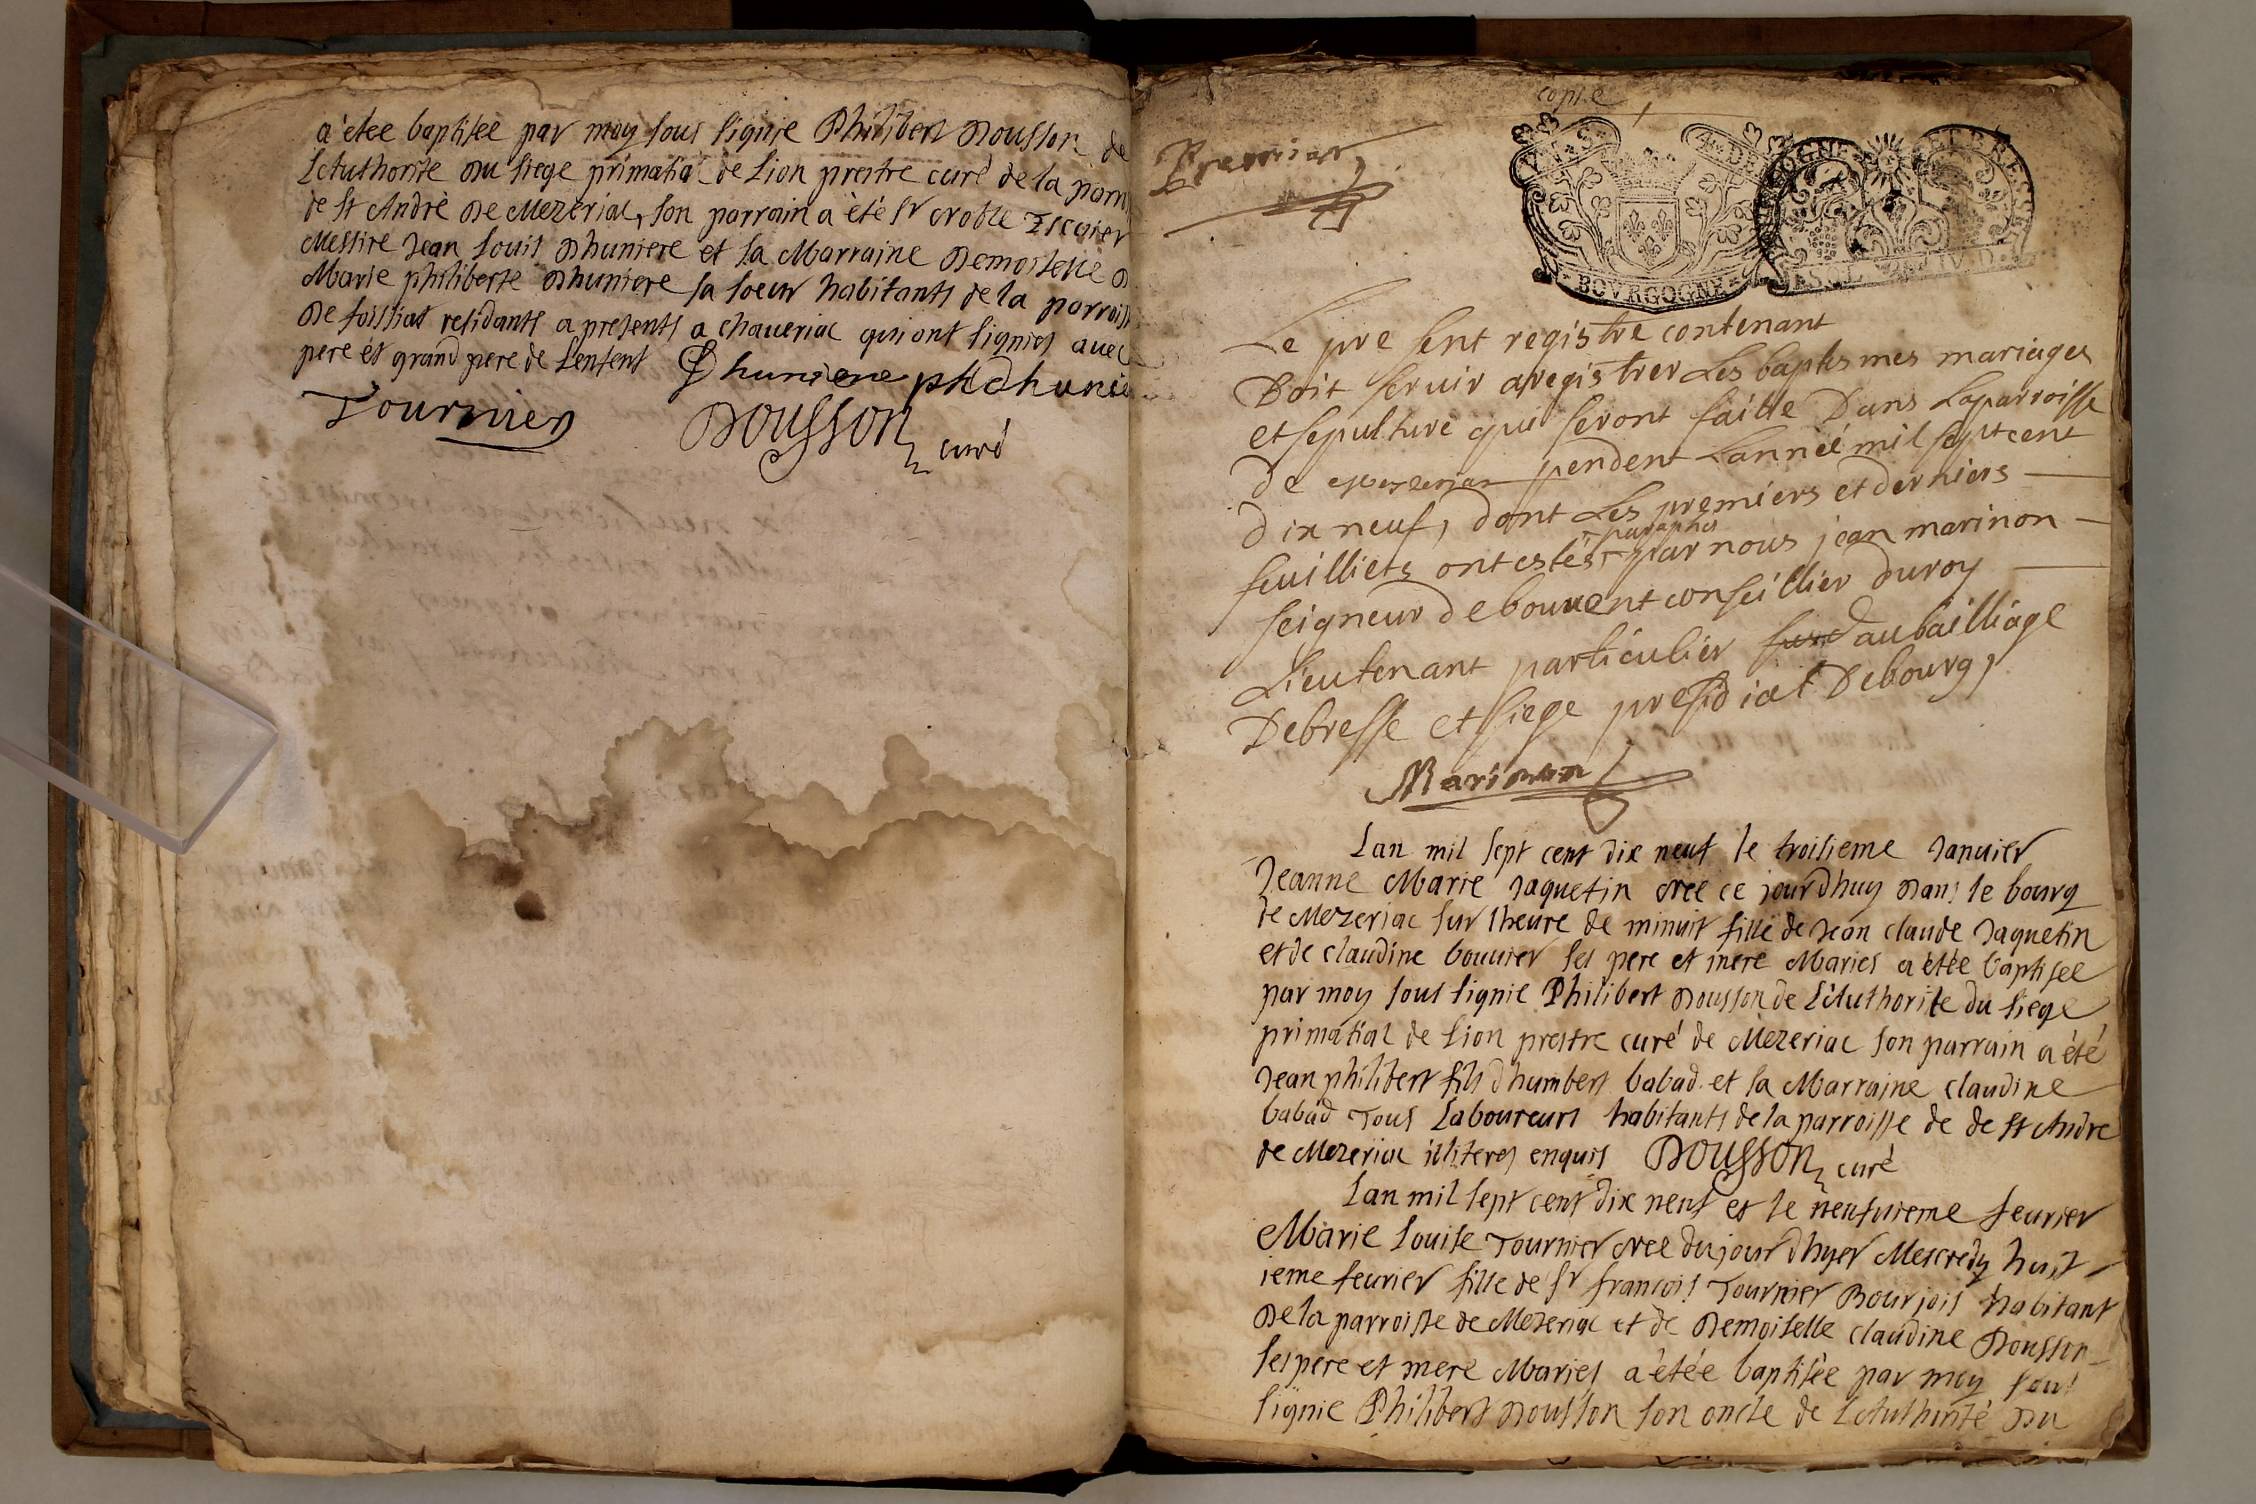 a étee baptisée par moy sous signie Philibert Dousson de
L'Authorite Du siege primatia de Lion prestre curé de la parr
de st André De Mezeriac, son parrain a été sr Noble Escuier
Messire Jean Louis Dhuniere et sa Marraine Demoiselle
Marie philiberte Dhuniere sa soeur habitants de la parroiss
De foissiat residants a presents a chaveriac qui ont signies avec
pere et grand pere de L'enfent Dhuniere ph Dhunie
Tournier Dousson curé
copie
Premier
BOVRGOGNE
BOVRGOGNE ET BRESSE
Le present registre contenant
Doit servir a registrer Les baptesmes mariages
et sepulture qui seront faitte Dans Laparroisse
De mezeriac pendent Lanneé mil sept cent
Dix neuf, dont Les premiers et derniers
feuilliets ont estés paraphes par nous jean marinon
seigneur De bouvent conseillier du roy
Lieutenant particulier au bailliage
De bresse et siege presidial De bourg,
Marinon
Lan mil sept cent dix neuf le troisieme Janvier
Jeanne Marie Jaquetin Nee ce jourdhuy Dans le bourg
de Mezeriac sur lheure de minuit fille de Jean claude Jaquetin
et de claudine bouvier ses pere et mere Maries a étée baptisee
par moy sous signie Philibert Dousson de L'Authorite du siege
primatial de Lion prestre curé de Mezeriac son parrain a été
Jean philibert fils dhumbert babad et sa Marraine claudine
babad Tous Laboureurs habitants de la parroisse de de st Andre
de Mezeriac illiteres enquis Dousson curé
Lan mil sept cent dix neuf et le neufvieme fevrier
Marie Louise Tournier Nee du jour dhyer Mescredy huit
ieme fevrier fille de sr francois Tournier Bourjois habitant
De la parroisse de Mezeriac et de Demoiselle claudine Dousson
ses pere et mere Maries a étée baptisée par moy sous
signie Philibert Dousson son oncle de L'Authorité Du